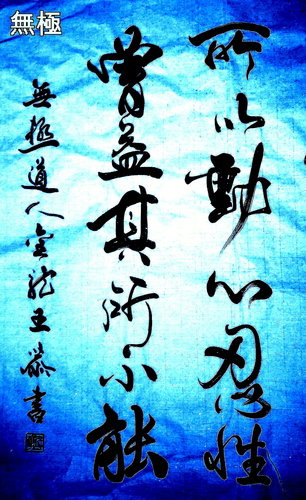 無極
所以動心忍性
曾益其所不能
無極道人金龍王恭書